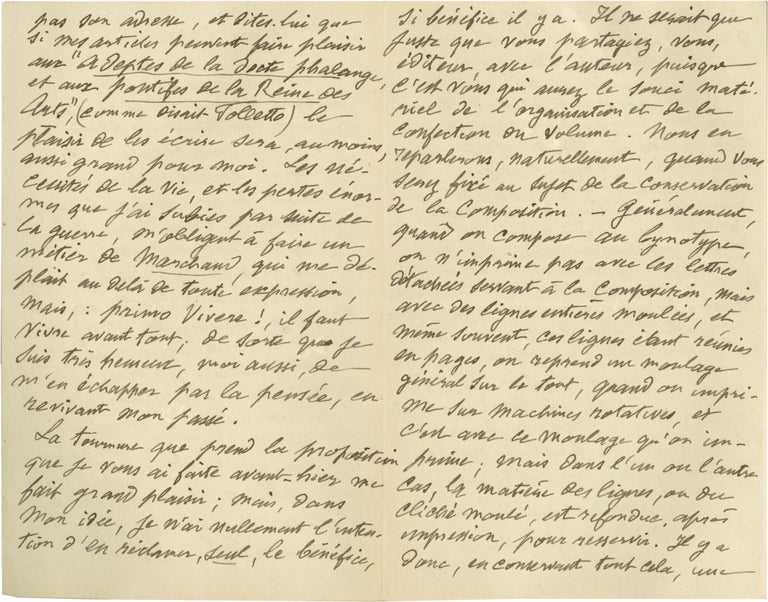 pas son adresse, et dites-lui que
si mes articles peuvent faire plaisir
aux "Adeptes de la docte phalange,
et aux pontifes de la Reine des
Arts", (comme disait Tolletto) le
plaisir de les écrire sera, au moins,
aussi grand pour moi. Les né-
cessités de la vie, et les pertes énor-
mes que j'ai subies par suite de
la guerre, m'obligent à faire un
métier de Marchand, qui me dé-
plait au delà de toute expression,
mais, : primo Vivere !, il faut
vivre avant tout; de sorte que je
suis très heureux, moi aussi, de
m'en échapper par la pensée, en
revivant mon passé.
La tournure que prend la proposition
que je vous ai faite avant-hier me
fait grand plaisir; mais, dans
mon idée, je n'ai nullement l'inten-
tion d'en réclamer, seul, le bénéfice,
si bénéfice il y a. Il ne serait que
juste que vous partagiez, vous,
éditeur avec l'auteur, puisque
c'est vous qui aurez le souci maté-
riel de l'organisation et de la
confection du volume. Nous en
reparlerons, naturellement, quand vous
serez fixé au sujet de la conservation
de la Composition. – Généralement,
quand on compose au Lynotype,
on n'imprime pas avec les lettres
détachées servant à la Composition, mais
avec des lignes entières moulées, et
même souvent, ces lignes étant réunies
en pages, on reprend un moulage
général sur le tout, quand on impri-
me sur machines rotatives, et
c'est avec ce moulage qu'on im-
prime; mais dans l'un ou l'autre
cas, la matière des lignes, ou du
cliché moulé, est refondue, après
impression, pour resservir. Il y a
donc, en conservant tout cela, une